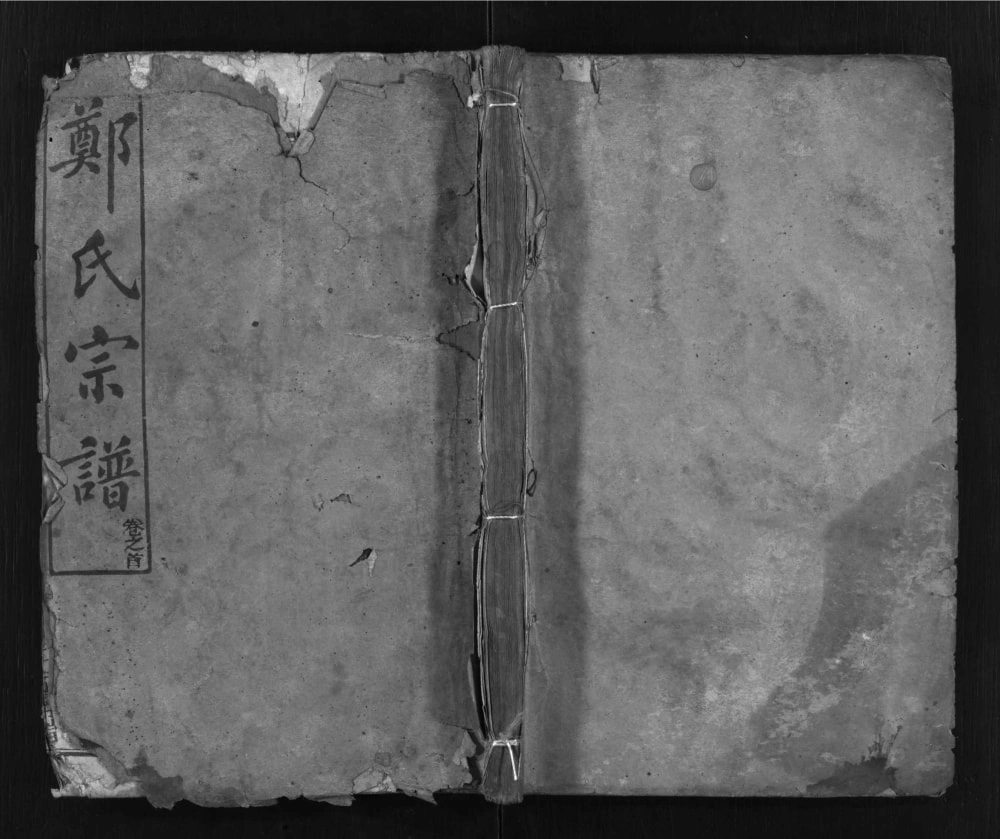 鄭氏宗譜
卷之首